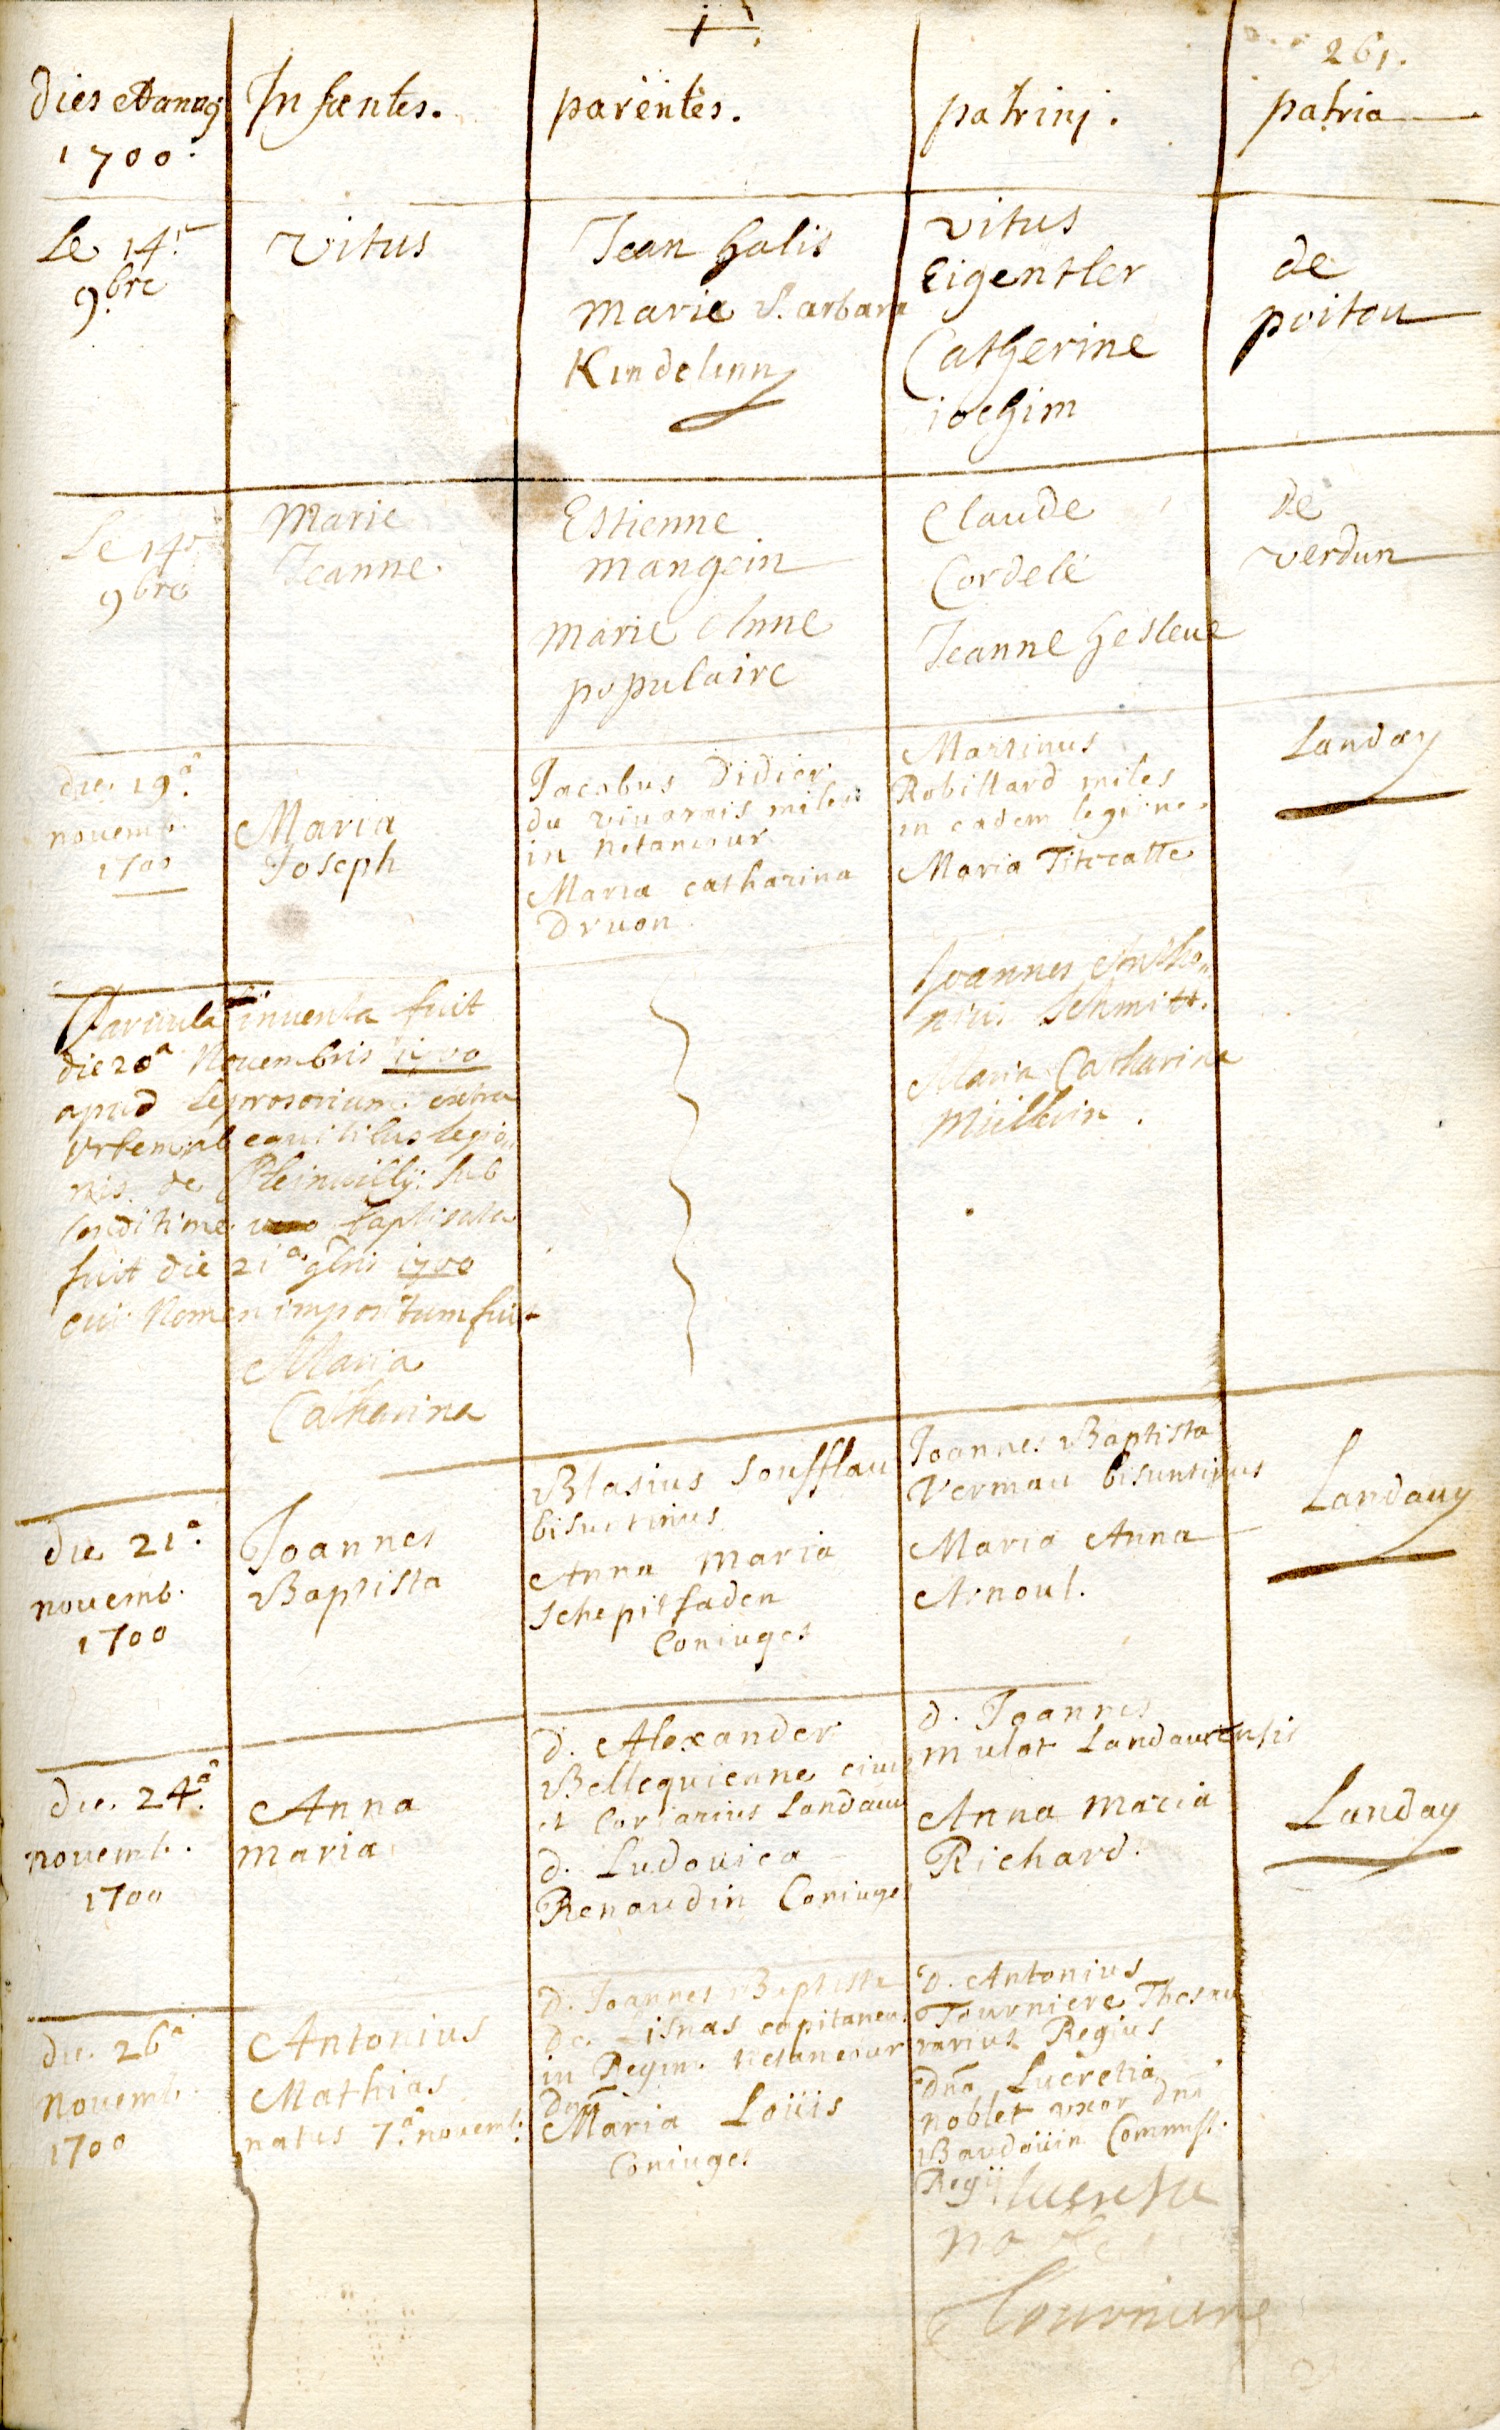 261.
Dies et annus
1700.
Infantes.
parentes.
patrini.
patria
Le 14.
9.bre
Vitus
Jean halis
marie Barbara
Kindelinn
vitus
Eigentler
Catherine
iochim
de
poitou
Le 14e
9bre
Marie
Jeanne.
Estienne
mangein
marie Anne
populaire
Claude
Cordele
Jeanne hesleue
de
verdun
die 19.a
novemb.
1700
Maria
Joseph
Jacobus Didier
du vivarais miles
in
Maria catharina
Druon
Martinus
Robillard miles
in eadem legione.
Maria
Landay
Parvula inventa fuit
die 20a Novembris 1700
apud Leprosorium extra
Urbem ab equitibus legio-
nis de sub
Conditione baptisata
fuit die 21a 9bris 1700
cui Nomen impositum fuit
Maria
Catharina
Joannes Antho-
nius Schmitt.
Maria Catharina
Müllerin.
die 21a.
novemb.
1700
Joannes
Baptista
Blasius Soufflau
bisuntinus
Anna maria
Schepisfaden
Coniuges
Joannes Baptista
Vermau bisuntinus
Maria Anna
Arnoul.
Landauy
die 24.a
novemb.
1700
Anna
maria
d. Alexander
Bellequienne civis
et Coriarius Landau
d. Ludovica
Renaudin Coniuges
d. Joannes
mulot Landaviensis
Anna maria
Richard.
Landay
die 26a
Novemb.
1700
Antonius
Mathias
natus 7.a novemb.
D. Joannes Baptista
De Lisnas capitaneus
in Regim.
Dna
Maria Loüis
Coniuges
D. Antonius
Tourniere Thesau
rarius Regius
Dna Lucretia
noblet uxor dni
Baudoüin Commiss.
Regii
lucresse
Tourniere